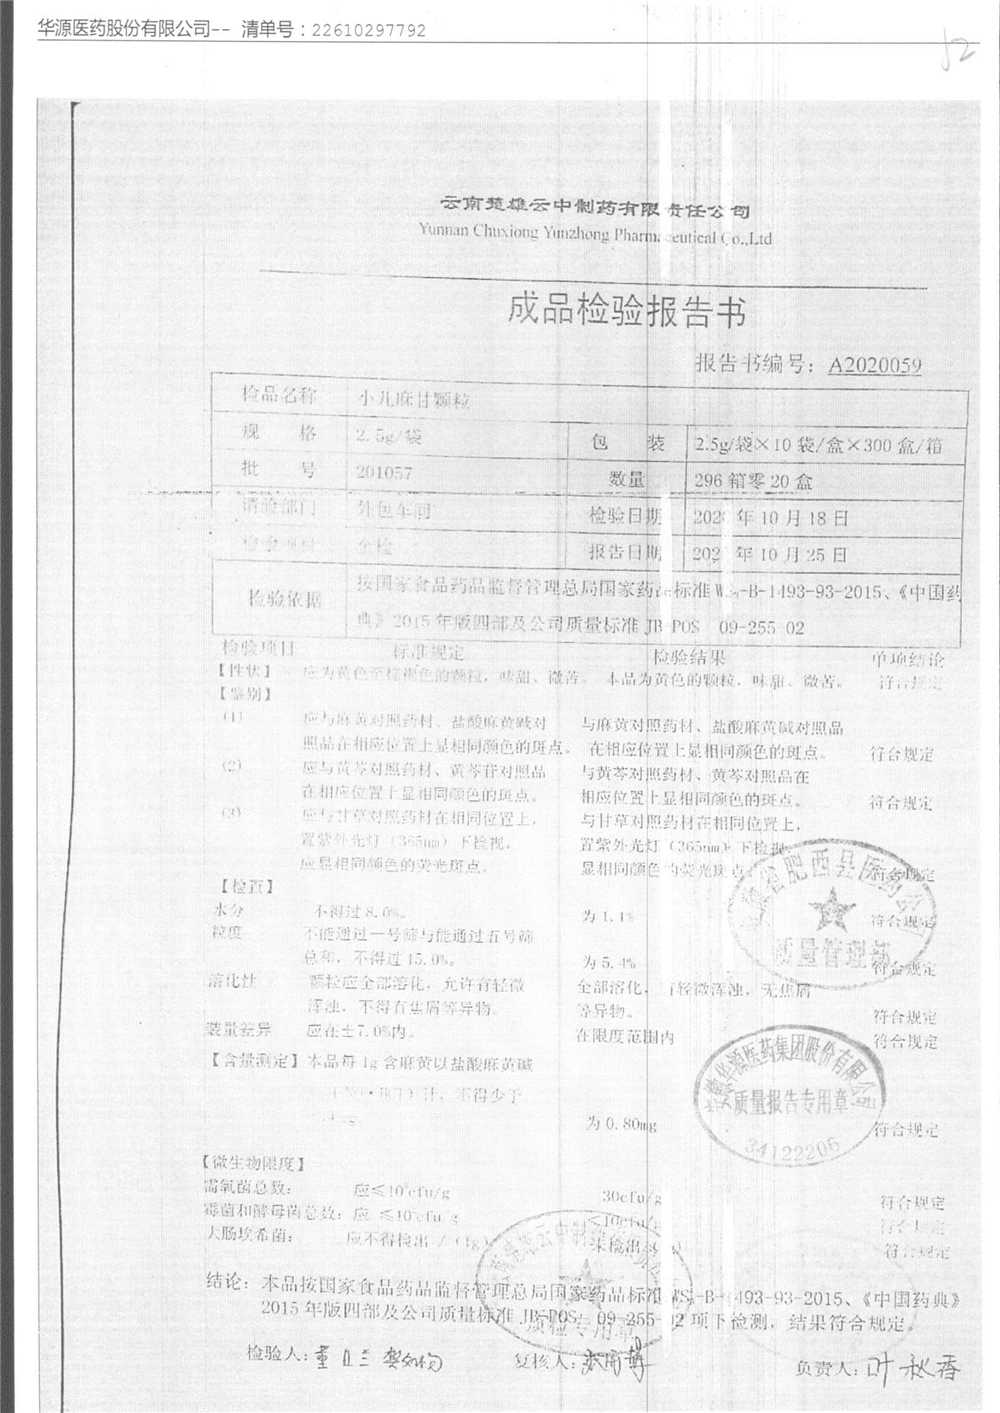 华源医药股份有限公司-- 清单号：22610297792
52
云南楚雄云中制药有限责任公司
Yunnan Chuxiong Yunzhong Pharmaceutical Co.,Ltd
成品检验报告书
报告书编号：A2020059
检品名称 小儿麻甘颗粒
规 格 2.5g/袋 包 装 2.5g/袋×10袋/盒×300盒/箱
批 号 201057 数量 296箱零20盒
请验部门 外包车间 检验日期 202 年10月18日
全检 报告日期 202 年10月25日
检验依据 按国家食品药品监督管理总局国家药品标准WS-B-1493-93-2015、《中国药
典》2015年版四部及公司质量标准JB-POS 09-255-02
检验项目 标准规定 检验结果 单项结论
【性状】 应为黄色至棕褐色的颗粒，味甜、微苦。 本品为黄色的颗粒，味甜、微苦。 符合规定
【鉴别】
(1) 应与麻黄对照药材、盐酸麻黄碱对 与麻黄对照药材、盐酸麻黄碱对照品
照品在相应位置上显相同颜色的斑点。 在相应位置上显相同颜色的斑点。 符合规定
(2) 应与黄芩对照药材、黄芩苷对照品 与黄芩对照药材、黄芩对照品在
在相应位置上显相同颜色的斑点。 相应位置上显相同颜色的斑点。 符合规定
(3) 应与甘草对照药材在相同位置上， 与甘草对照药材在相同位置上，
置紫外光灯（365nm）下检视， 置紫外光灯（365nm）下检视，
应显相同颜色的荧光斑点。 显相同颜色的荧光斑点 符合规定
【检查】
水分 不得过8.0%。 为1.1% 符合规定
粒度 不能通过一号筛与能通过五号筛
总和，不得过15.0%。 为5.4% 符合规定
溶化性 颗粒应全部溶化，允许有轻微 全部溶化，有轻微浑浊，无焦屑
浑浊，不得有焦屑等异物。 等异物。 符合规定
装量差异 应在±7.0%内。 在限度范围内 符合规定
【含量测定】本品每1g含麻黄以盐酸麻黄碱
计，不得少于
为0.80mg 符合规定
【微生物限度】
需氧菌总数： 应≤10³cfu/g 30cfu/g 符合规定
霉菌和酵母菌总数：应 ≤10²cfu/g <10cfu/g 符合规定
大肠埃希菌： 应不得检出/（1g） 未检出 符合规定
结论：本品按国家食品药品监督管理总局国家药品标准WS-B-1493-93-2015、《中国药典》
2015年版四部及公司质量标准JB-POS 09-255-02项下检测，结果符合规定。
检验人： 复核人： 负责人：叶秋香
安徽省肥西县医药公司
质量管理部
安徽华源医药集团股份有限公司
质量报告专用章
34122206
质检专用章